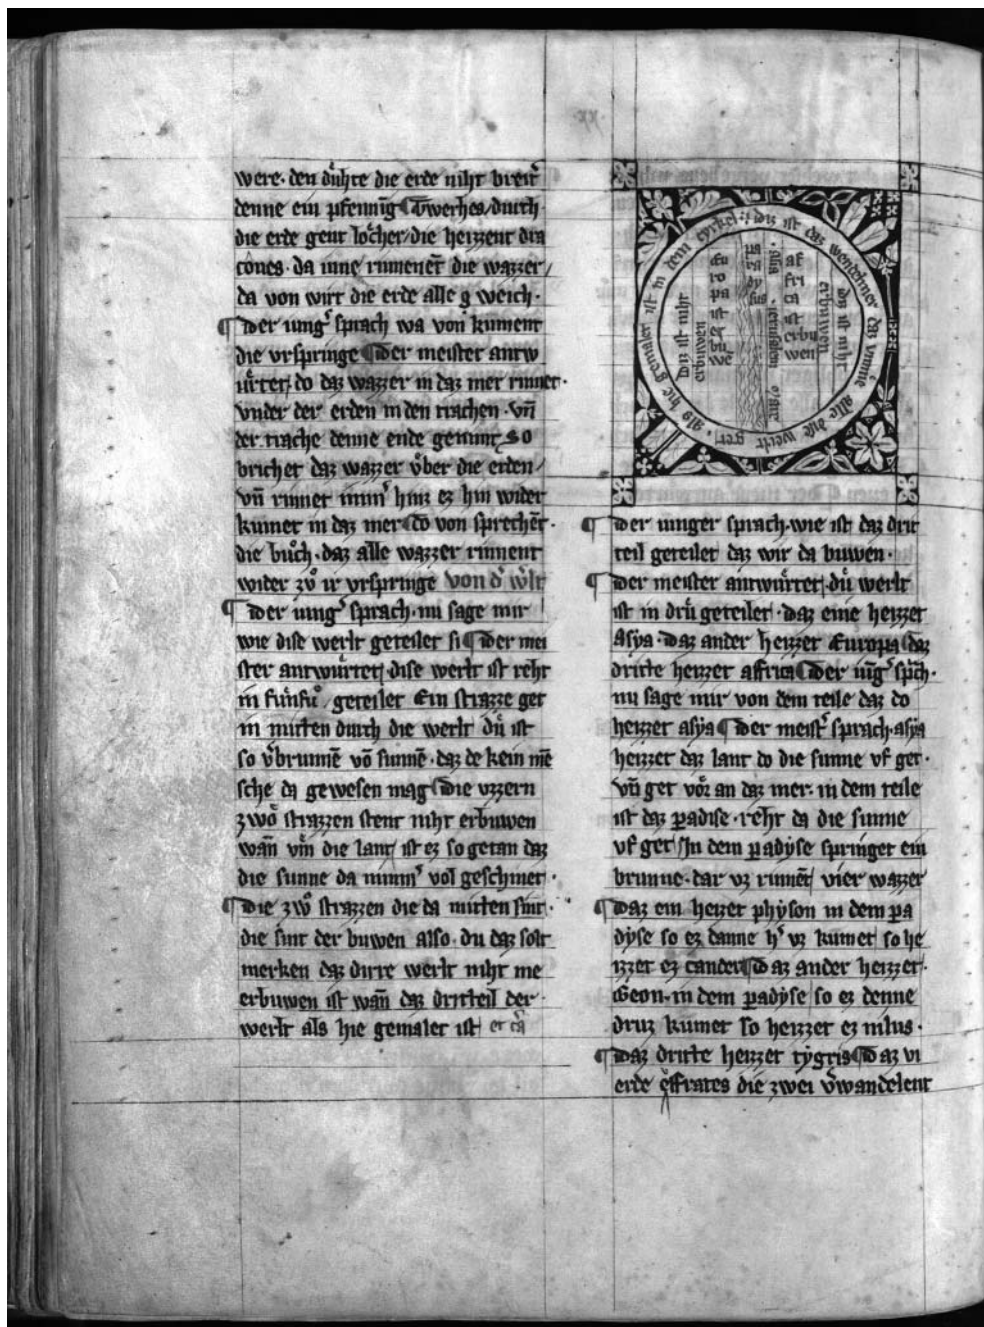 were· den důhte die erde niht breit͛
denne ein pfenning ¶ Twerhes durch
die erde gent lócher/die heizzent dra
cones· da inne rinnenēt die wazzer/
da von wirt die erde alle g weich·
¶ Der iung͛ sprach wa von kument
die vrspringe ¶ Der meister antw
ůrtet/ do daz wazzer in daz mer rinnet·
vnder der erden in den trachen· vn̄
der trache denne ende genimt so
brichet daz wazzer v̊ber die erden/
vn̄ rinnet imm͛ hinz ez hin wider
kumet in daz mer ¶ do von sprechēt·
die bůch· daz alle wazzer rinnent
wider zů ir vrspringe von d͛ w͛lt
¶ Der iung͛ sprach· nu sage mir
wie dise werlt geteilet si ¶ Der mei
ster antwůrtet/ dise werlt ist reht
in fůnfů geteilet Ein strazze get
in mitten durch die werlt dů ist
so v͛brunnē vō sunnē· daz de kein mē
sche da gewesen mag ¶ Die vzzern
zwo strazzen stent niht erbuwen
wan̄ vm̄ die lant/ ist ez so getan daz
die sunne da nimm͛ vol geschinet·
¶ Die zwo strazzen die da mitten sint·
die sint der buwen also· du daz solt
merken daz dirre werlt niht me
erbuwen ist wan̄ daz dritteil der
werlt als hie gemalet ist/
daz ist daz wendelmer daz vmmē alle dise werlt get · als hie gemalet ist in dem cyrkel
Diz ist niht
erbuwen
Eu
ro
pa
ist
er
bu
wē
pa
ra
dy
sus
asya· ierusalem
af
fri
ca
ist
erbu
wen
daz ist niht
erbuwen
¶ Der iunger sprach· wie ist daz drit
teil geteilet daz wir da buwen·
¶ Der meister antwůrtet/ dů werlt
ist in drů geteilet· daz eine heizzet
Asya· daz ander heizzet Europa ¶ daz
dritte heizzet affrica ¶ Der iūg͛ sp̄ch·
nu sage mir von dem teile daz do
heizzet asÿa ¶ Der meist͛ sprach· asÿa
heizzet daz lant do die sunne vf get·
vn̄ get vór an daz mer· in dem teile
ist daz p̱adise· reht da die sunne
vf get/ Jn dem p̱adÿse springet ein
brunne· dar vz rinnēt/ vier wazzer
¶ Daz ein heizet physon in dem p̱a
dÿse so ez danne h͛ vz kumet/ so he
izzet ez cander ¶ Daz ander heizzet·
Geon· in dem p̱adÿse/ so ez denne
druz kumet so heizzet ez nilus·
¶ Daz dritte heizzet tygris ¶ Daz vi
erde effrates die zwei v͛wandelent